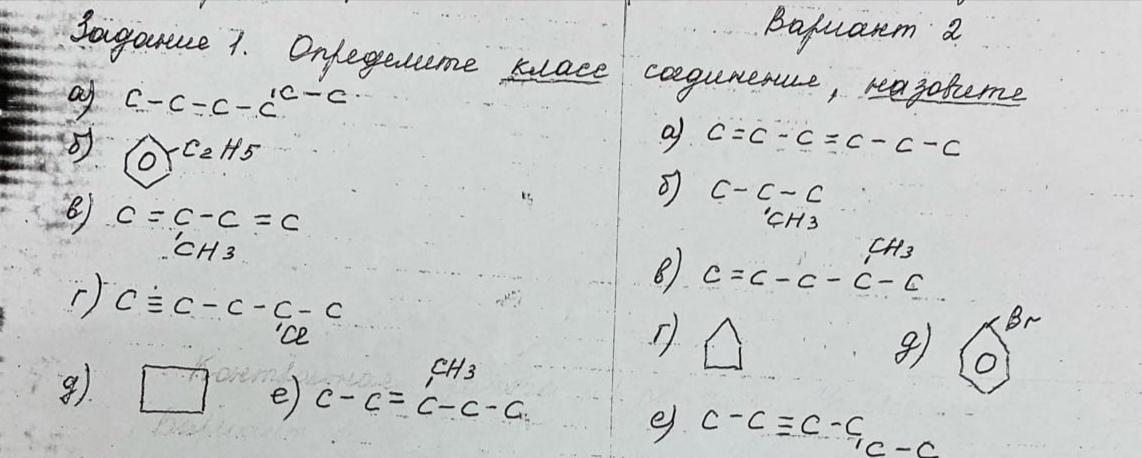 Задание 1. Определите класс соединения, назовите
а) C-C=C-C-C-C
б) C2H5
в) C=C-C=C
CH3
г) C≡C-C-C-C
Cl
д)
е) C-C=C-C-C
CH3
Вариант 2
а) C=C-C=C-C-C
б) C-C-C
CH3
CH3
в) C=C-C-C-C
г)
д) Br
е) C-C≡C-C
C-C